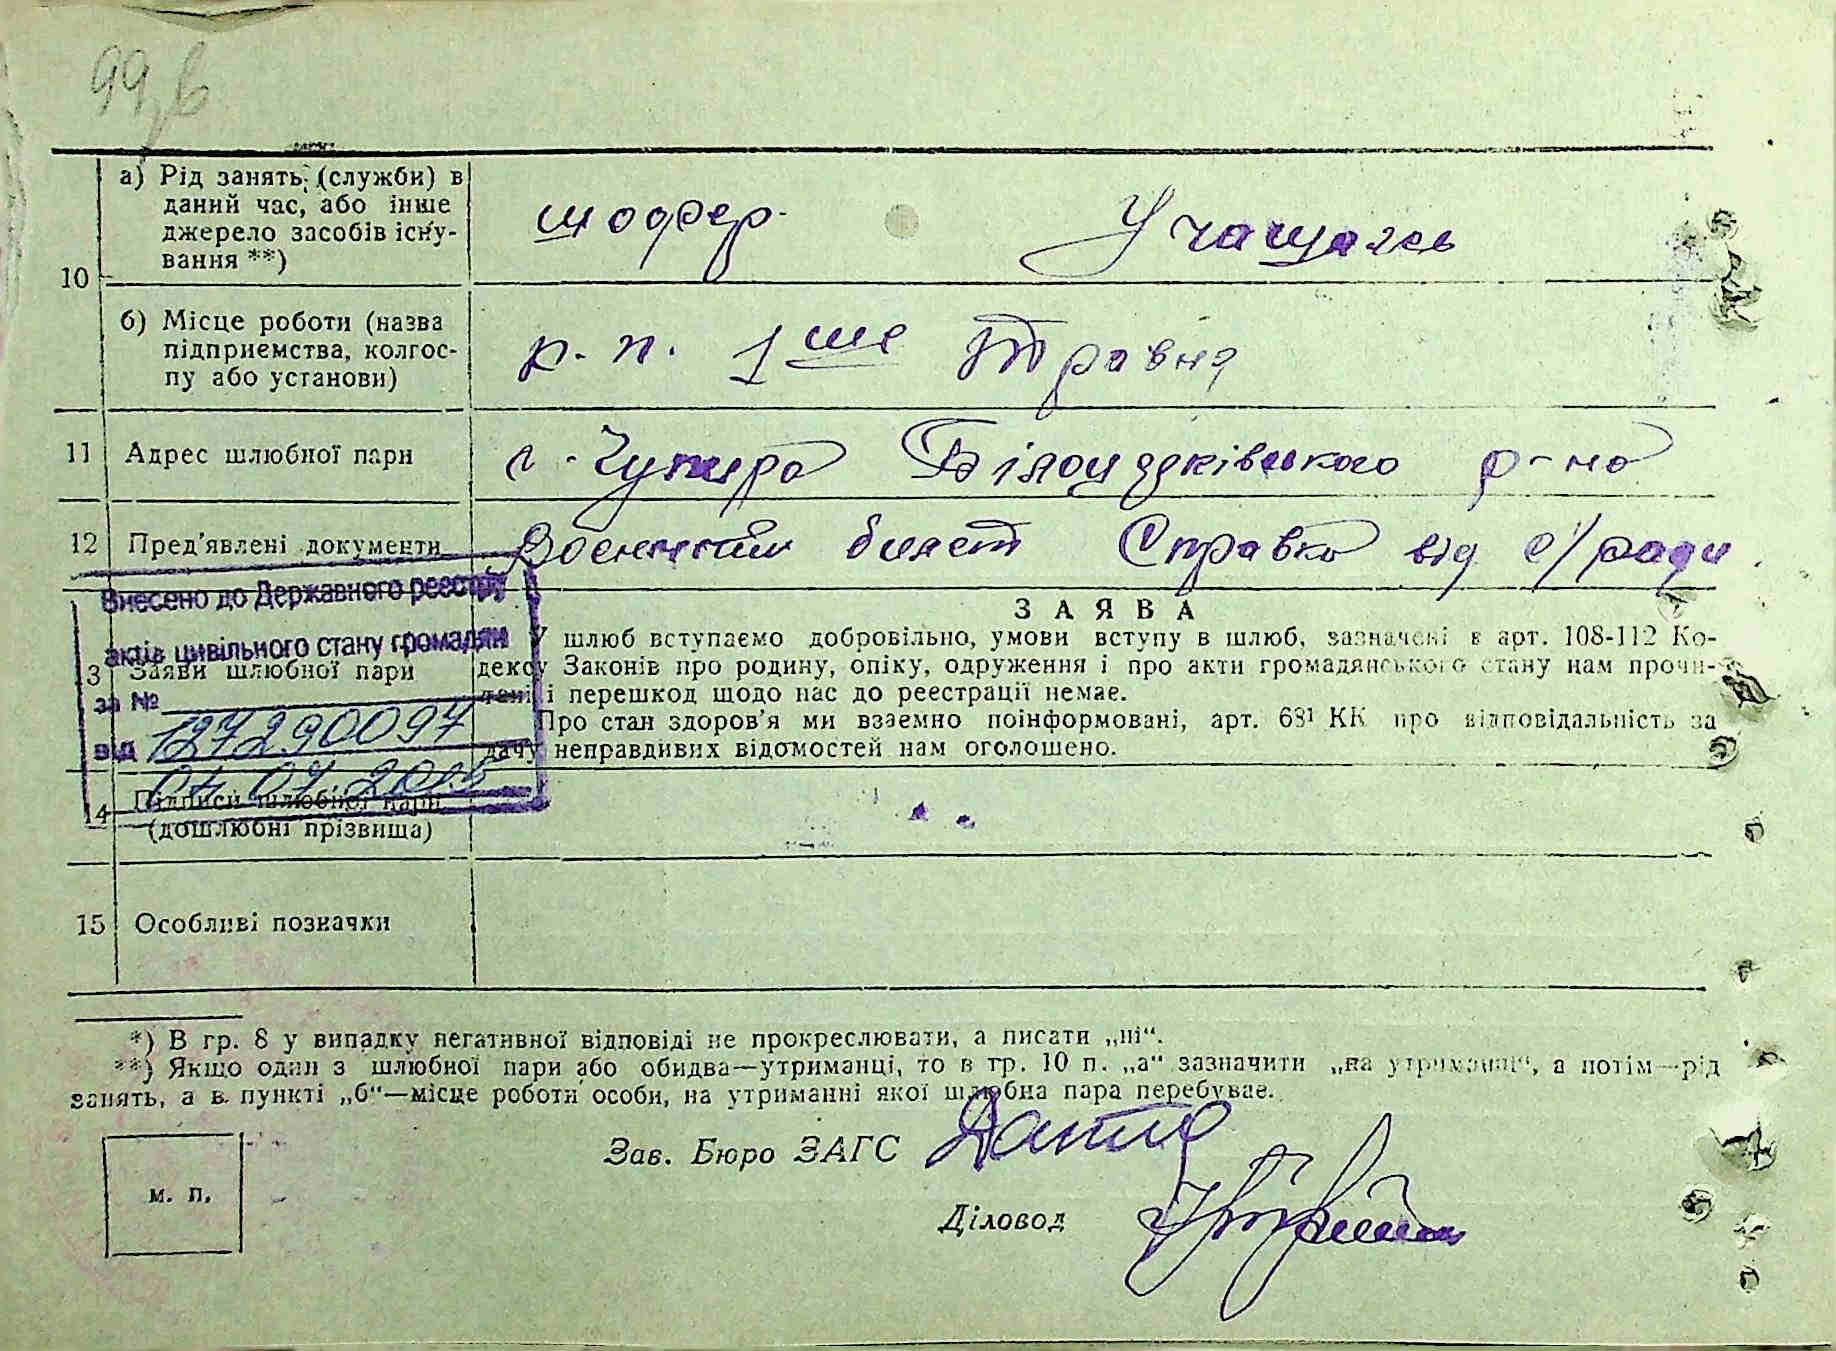 99, в
10
а) Рід занять (служби) в
даний час, або інше
джерело засобів існу-
вання **)
шофер
Учащаясь
б) Місце роботи (назва
підприємства, колгос-
пу або установи)
р. п. 1ше Травня
11 Адрес шлюбної пари
с. Чупира Білоцерківського р-на
12 Пред'явлені документи
Воєнний билет Справка від с/ради
Внесено до Державного реєстру
актів цивільного стану громадян
за №
127290097
від
04 07 2005
З А Я В А
3 Заяви шлюбної пари
У шлюб вступаємо добровільно, умови вступу в шлюб, зазначені в арт. 108-112 Ко-
дексу Законів про родину, опіку, одруження і про акти громадянського стану нам прочи-
тані і перешкод щодо нас до реєстрації немає.
Про стан здоров'я ми взаємно поінформовані, арт. 68¹ КК про відповідальність за
дачу неправдивих відомостей нам оголошено.
14 Підписи шлюбної пари
(дошлюбні прізвища)
15 Особливі позначки
*) В гр. 8 у випадку негативної відповіді не прокреслювати, а писати „ні“.
**) Якщо один з шлюбної пари або обидва—утриманці, то в гр. 10 п. „а“ зазначити „на утриманні“, а потім—рід
занять, а в пункті „б“—місце роботи особи, на утриманні якої шлюбна пара перебуває.
Зав. Бюро ЗАГС
м. п.
Діловод